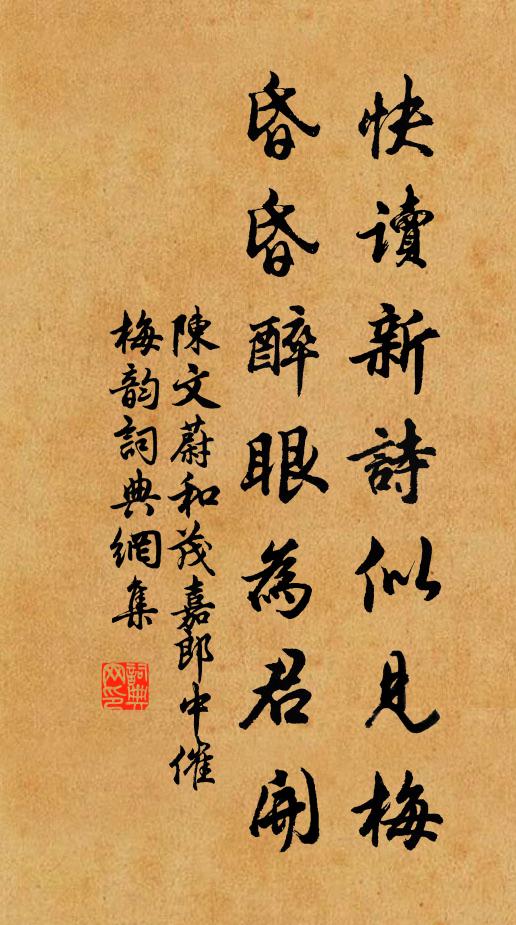 快讀新詩似見梅
昏昏醉眼為君開
陳文蔚和茂嘉郎中催
梅韵詞典網集
詞典网印